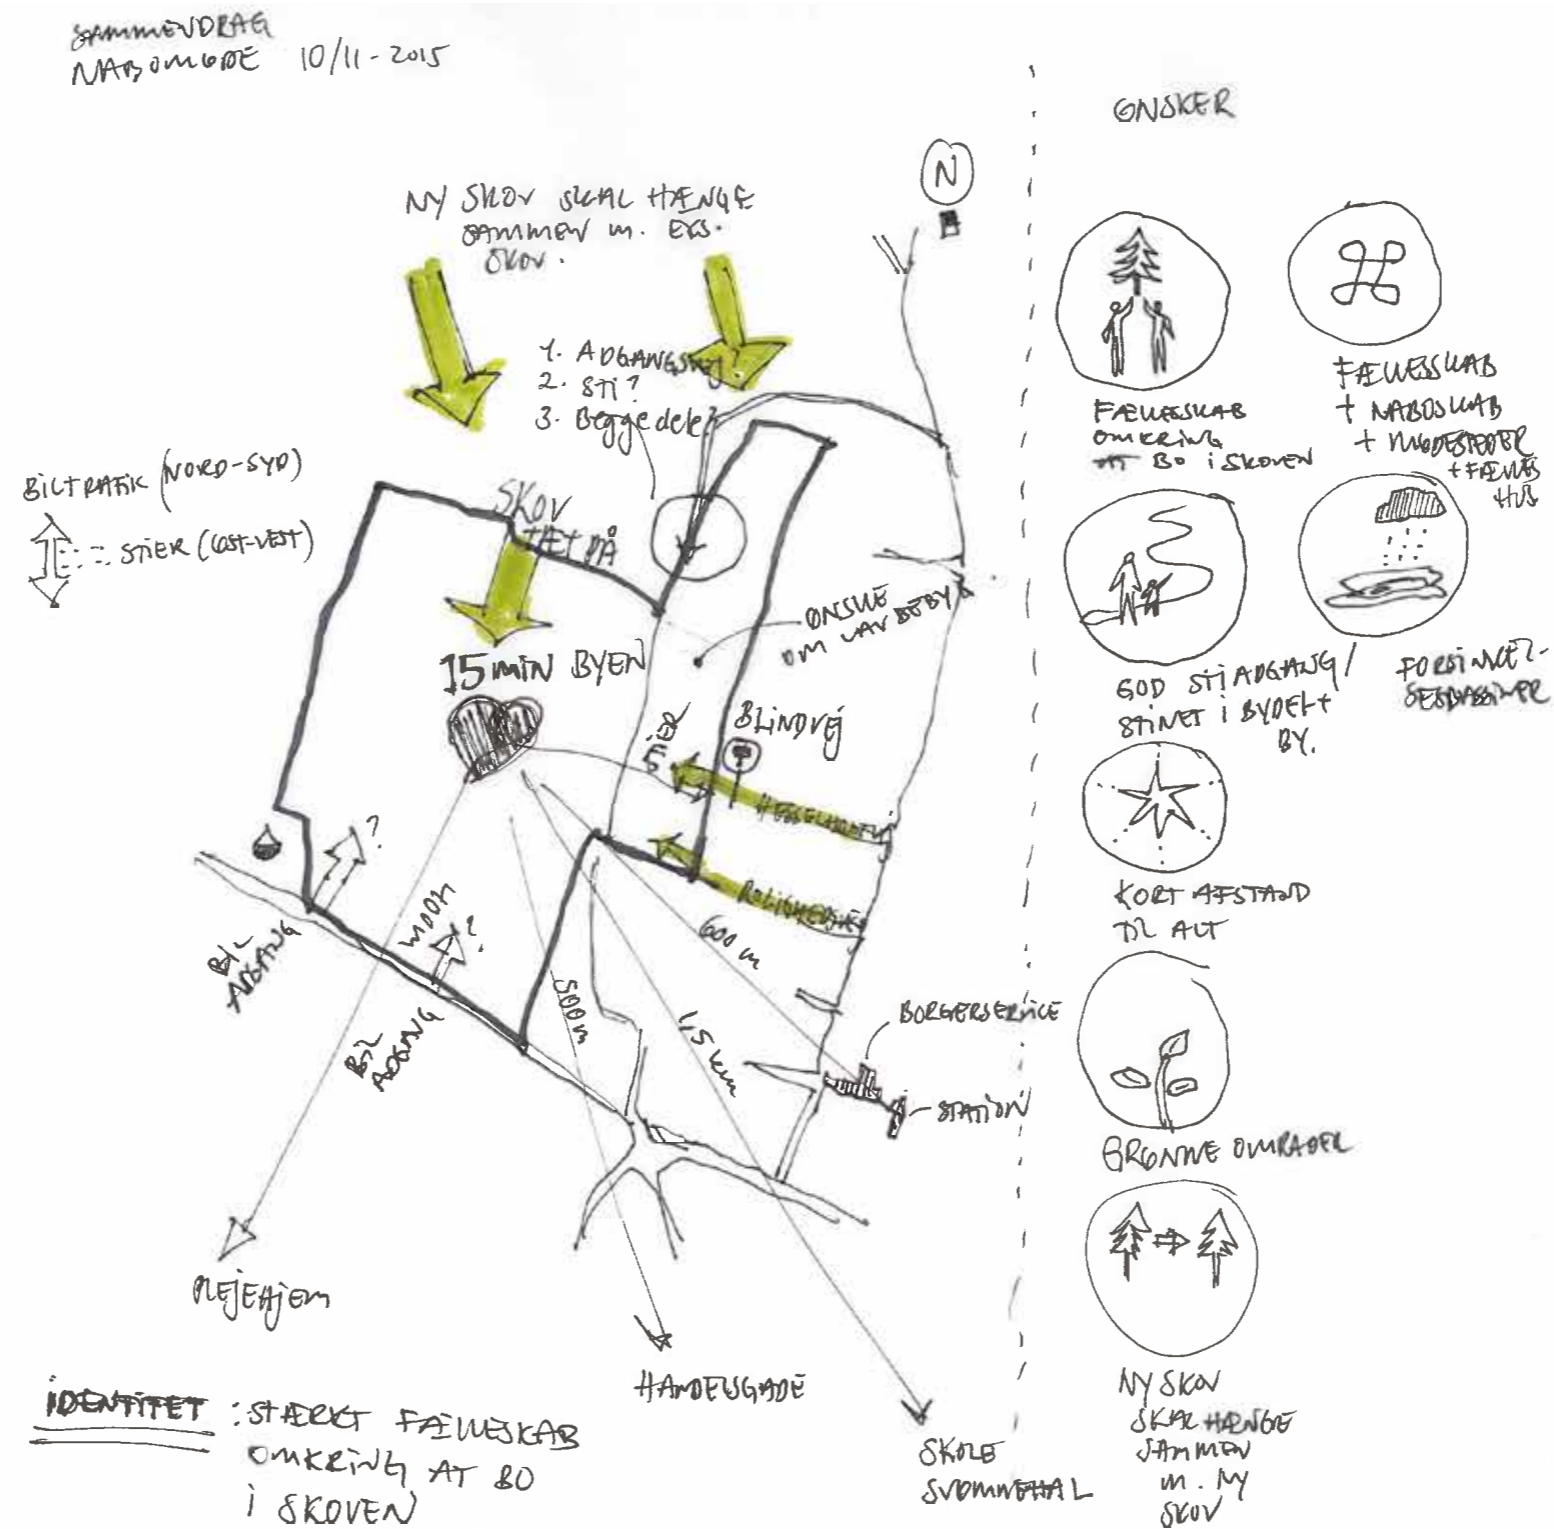 SAMMENDRAG
NABOMØDE 10/11-2015
NY SKOV SKAL HÆNGE
SAMMEN m. EKS.
SKOV.
N
1. ADGANGSVEJ
2. STI?
3. Begge dele?
BILTRAFIK (NORD-SYD)
STIER (ØST-VEST)
SKOV
TÆT PÅ
ØNSKE
OM LAV BEBY
15 MIN BYEN
BLINDVEJ
?
BIL
ADGANG
400M
?
BIL
ADGANG
500m
600 m
1,5 km
BORGERSERVICE
STATION
PLEJEHJEM
HANDELSGADE
SKOLE
SVØMMEHAL
IDENTITET : STÆRKT FÆLLESKAB
OMKRING AT BO
I SKOVEN
ØNSKER
FÆLLESSKAB
OMKRING
AT BO I SKOVEN
FÆLLESSKAB
+ NABOSKAB
+ MØDESTEDER
+ FÆLLES
HUS
GOD STIADGANG/
STINET I BYDEL+
BY.
FORSINKEL-
SESBASSINER
KORT AFSTAND
TIL ALT
GRØNNE OMRÅDER
NY SKOV
SKAL HÆNGE
SAMMEN
m. NY
SKOV